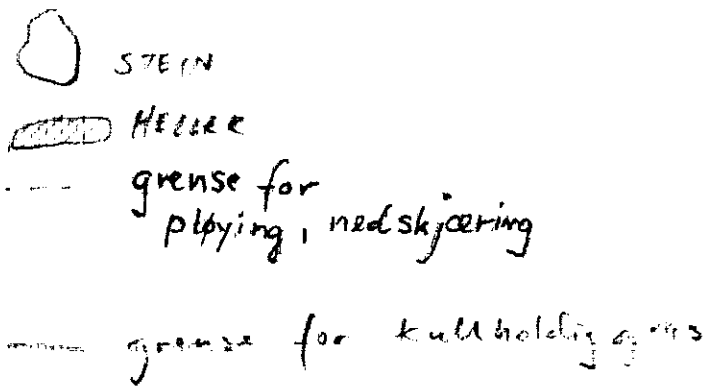 STEIN
HELLER
grense for
pløying, nedskjæring
grense for kullholdig grus